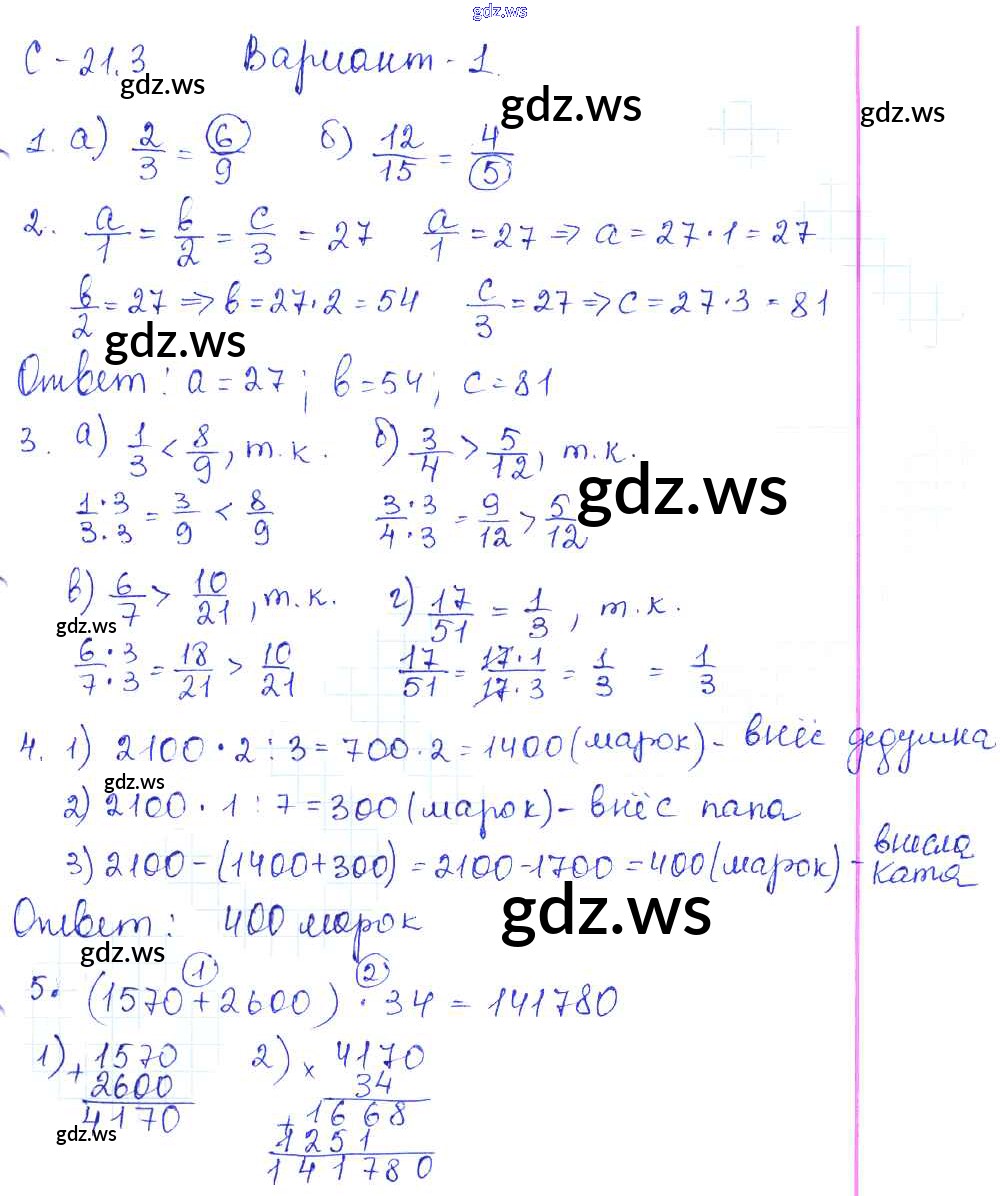 gdz.ws
С - 21.3 Вариант - 1.
gdz.ws
gdz.ws
gdz.ws
1. а) 2/3 = 6/9 б) 12/15 = 4/5
2. a/1 = b/2 = c/3 = 27 a/1 = 27 => a = 27 · 1 = 27
b/2 = 27 => b = 27 · 2 = 54 c/3 = 27 => c = 27 · 3 = 81
gdz.ws
Ответ: a = 27; b = 54; c = 81
3. а) 1/3 < 8/9, т.к. б) 3/4 > 5/12, т.к.
gdz.ws
1·3/3·3 = 3/9 < 8/9 3·3/4·3 = 9/12 > 5/12
в) 6/7 > 10/21, т.к. г) 17/51 = 1/3, т.к.
gdz.ws
6·3/7·3 = 18/21 > 10/21 17/51 = 17·1/17·3 = 1/3 = 1/3
4. 1) 2100 · 2 : 3 = 700 · 2 = 1400 (марок) - внёс дедушка
gdz.ws
2) 2100 · 1 : 7 = 300 (марок) - внёс папа
3) 2100 - (1400 + 300) = 2100 - 1700 = 400 (марок) - внесла Катя
Ответ: 400 марок
gdz.ws
gdz.ws
1 2
5. (1570 + 2600) · 34 = 141780
1) + 1570 2) × 4170
2600 34
4170 + 1668
gdz.ws
1251
141780